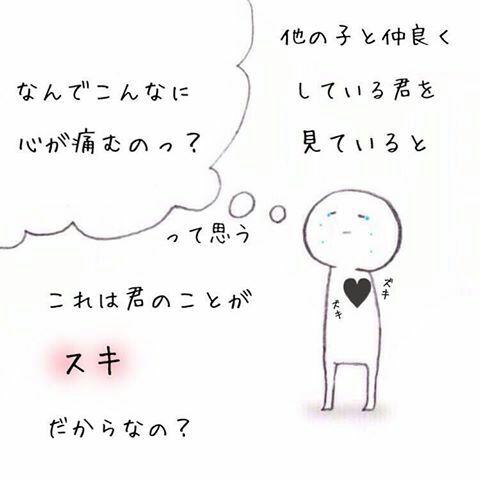 他の子と仲良く
している君を
見ていると
なんでこんなに
心が痛むのっ？
って思う
ズキ
ズキ
これは君のことが
スキ
だからなの？